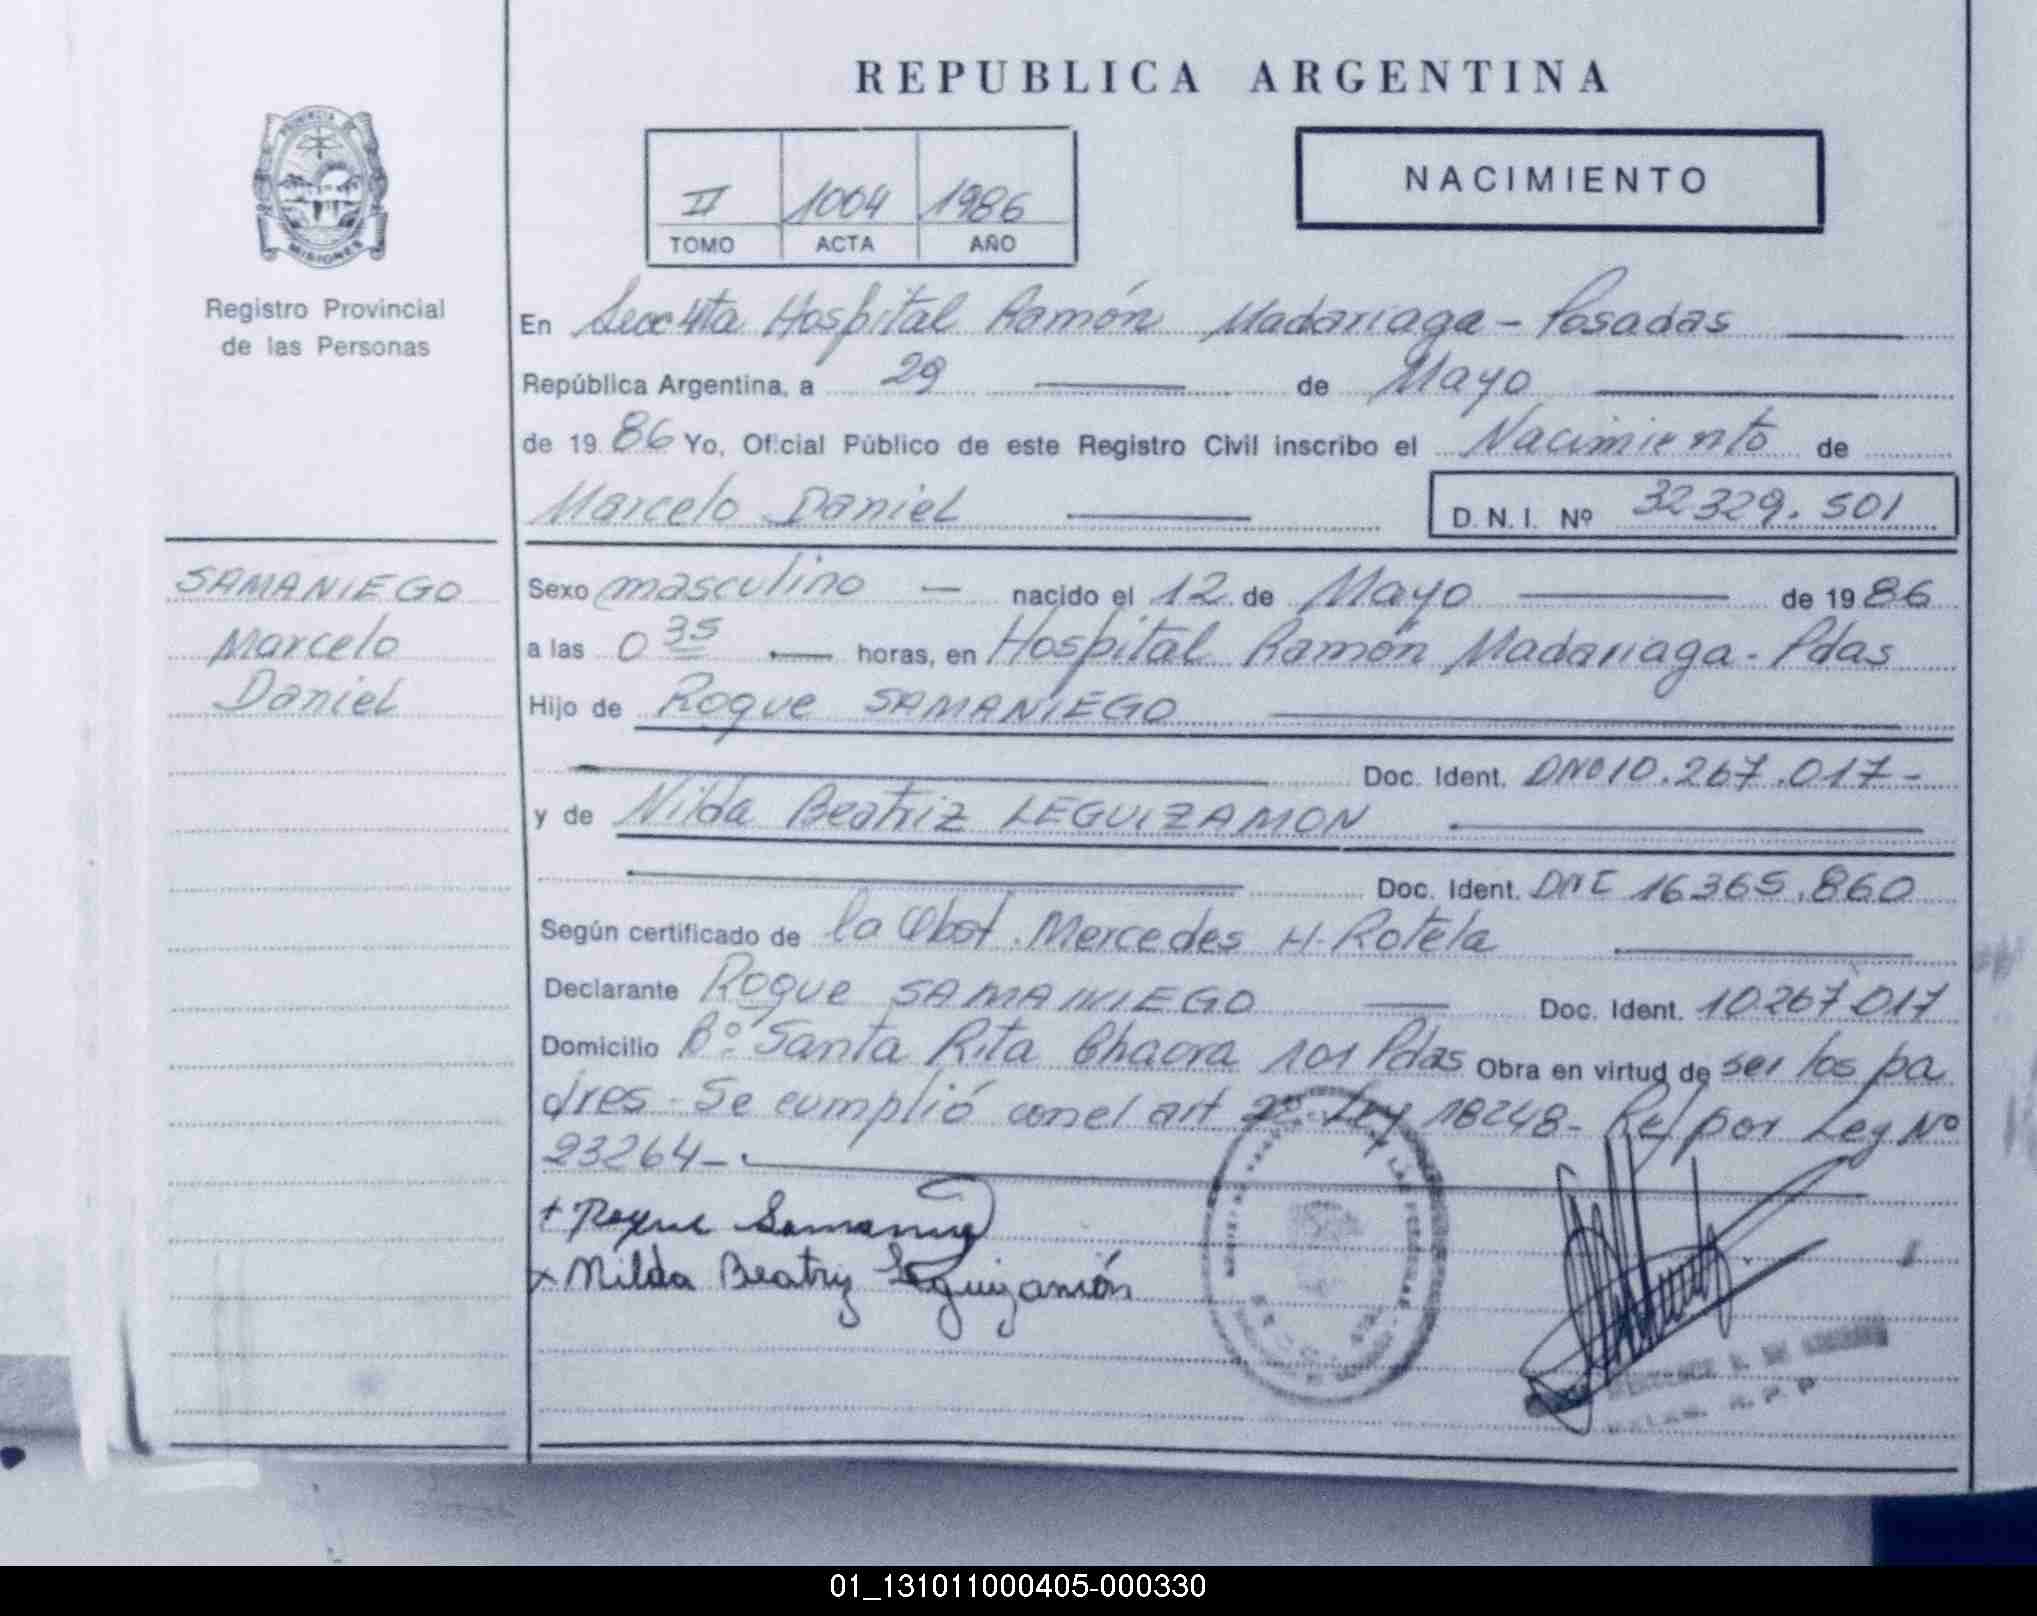 REPUBLICA ARGENTINA
PROVINCIA
MISIONES
Registro Provincial
de las Personas
II 1004 1986
TOMO ACTA AÑO
NACIMIENTO
En Secc 4ta Hospital Ramón Madariaga - Posadas
República Argentina, a 29 de Mayo
de 1986 Yo, Oficial Público de este Registro Civil inscribo el Nacimiento de
Marcelo Daniel D.N.I. Nº 32329.501
SAMANIEGO
Marcelo
Daniel
Sexo masculino - nacido el 12 de Mayo de 1986
a las 0 35 horas, en Hospital Ramón Madariaga - Pdas
Hijo de Roque SAMANIEGO
Doc. Ident. DNI 10.267.017-
y de Nilda Beatriz LEGUIZAMON
Doc. Ident. DNI 16365.860
Según certificado de la Obst. Mercedes H. Rotela
Declarante Roque SAMANIEGO Doc. Ident. 10267017
Domicilio Bº Santa Rita Chacra 101 Pdas Obra en virtud de ser los pa
dres - Se cumplió con el art 2º Ley 18248- Ref por Ley Nº
23264-
+ Roque Samaniego
x Nilda Beatriz Leguizamón
R. P. P
01_131011000405-000330